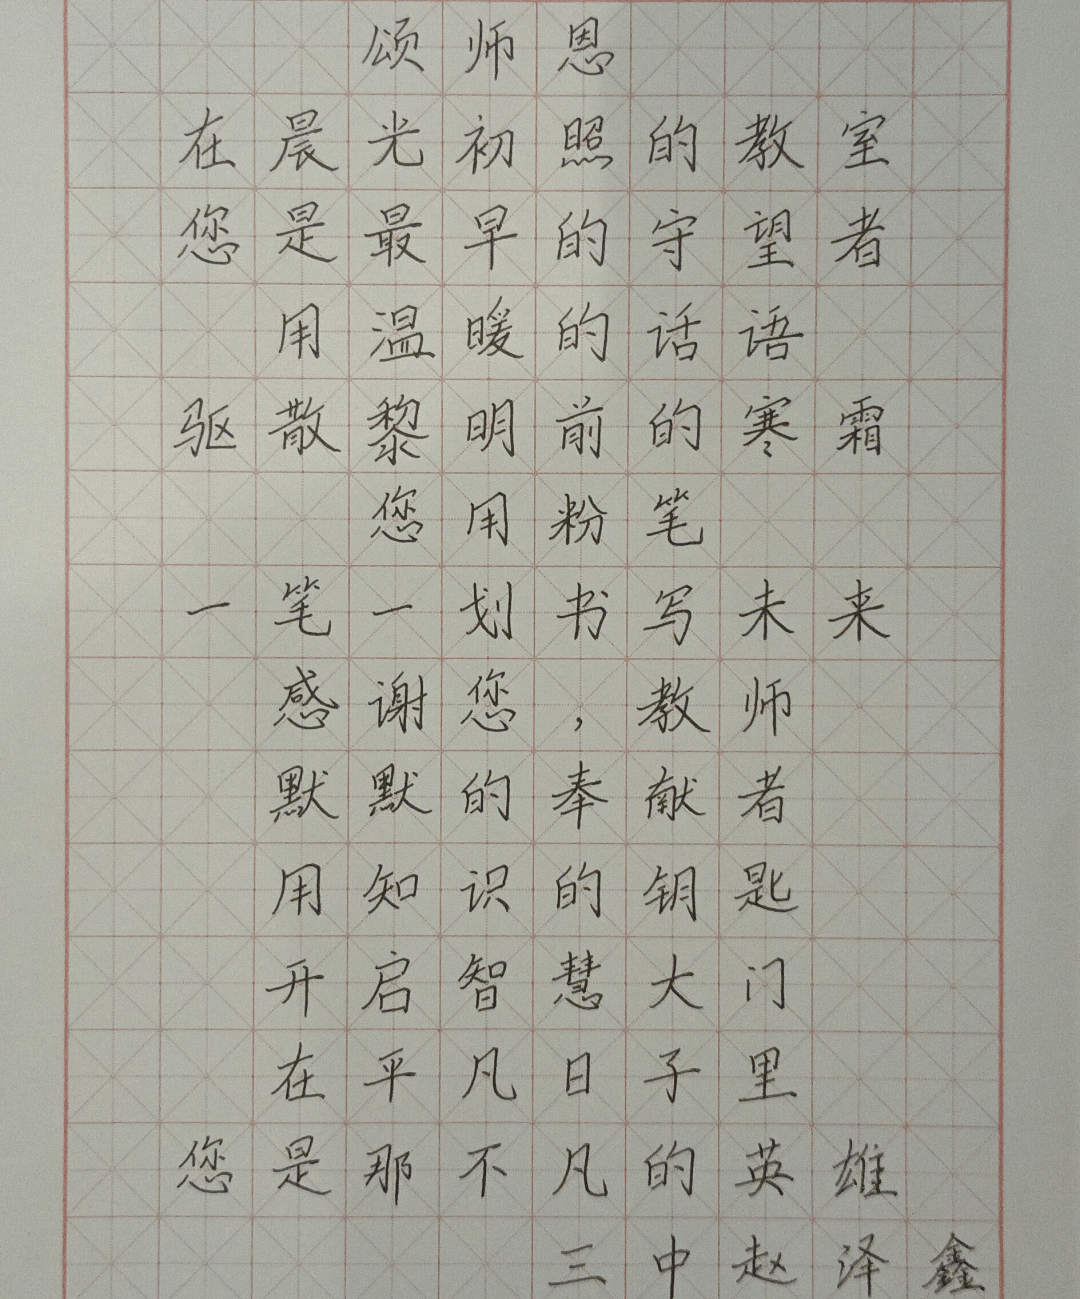 颂师恩
在晨光初照的教室
您是最早的守望者
用温暖的话语
驱散黎明前的寒霜
您用粉笔
一笔一划书写未来
感谢您,教师
默默的奉献者
用知识的钥匙
开启智慧大门
在平凡日子里
您是那不凡的英雄
三中赵泽鑫